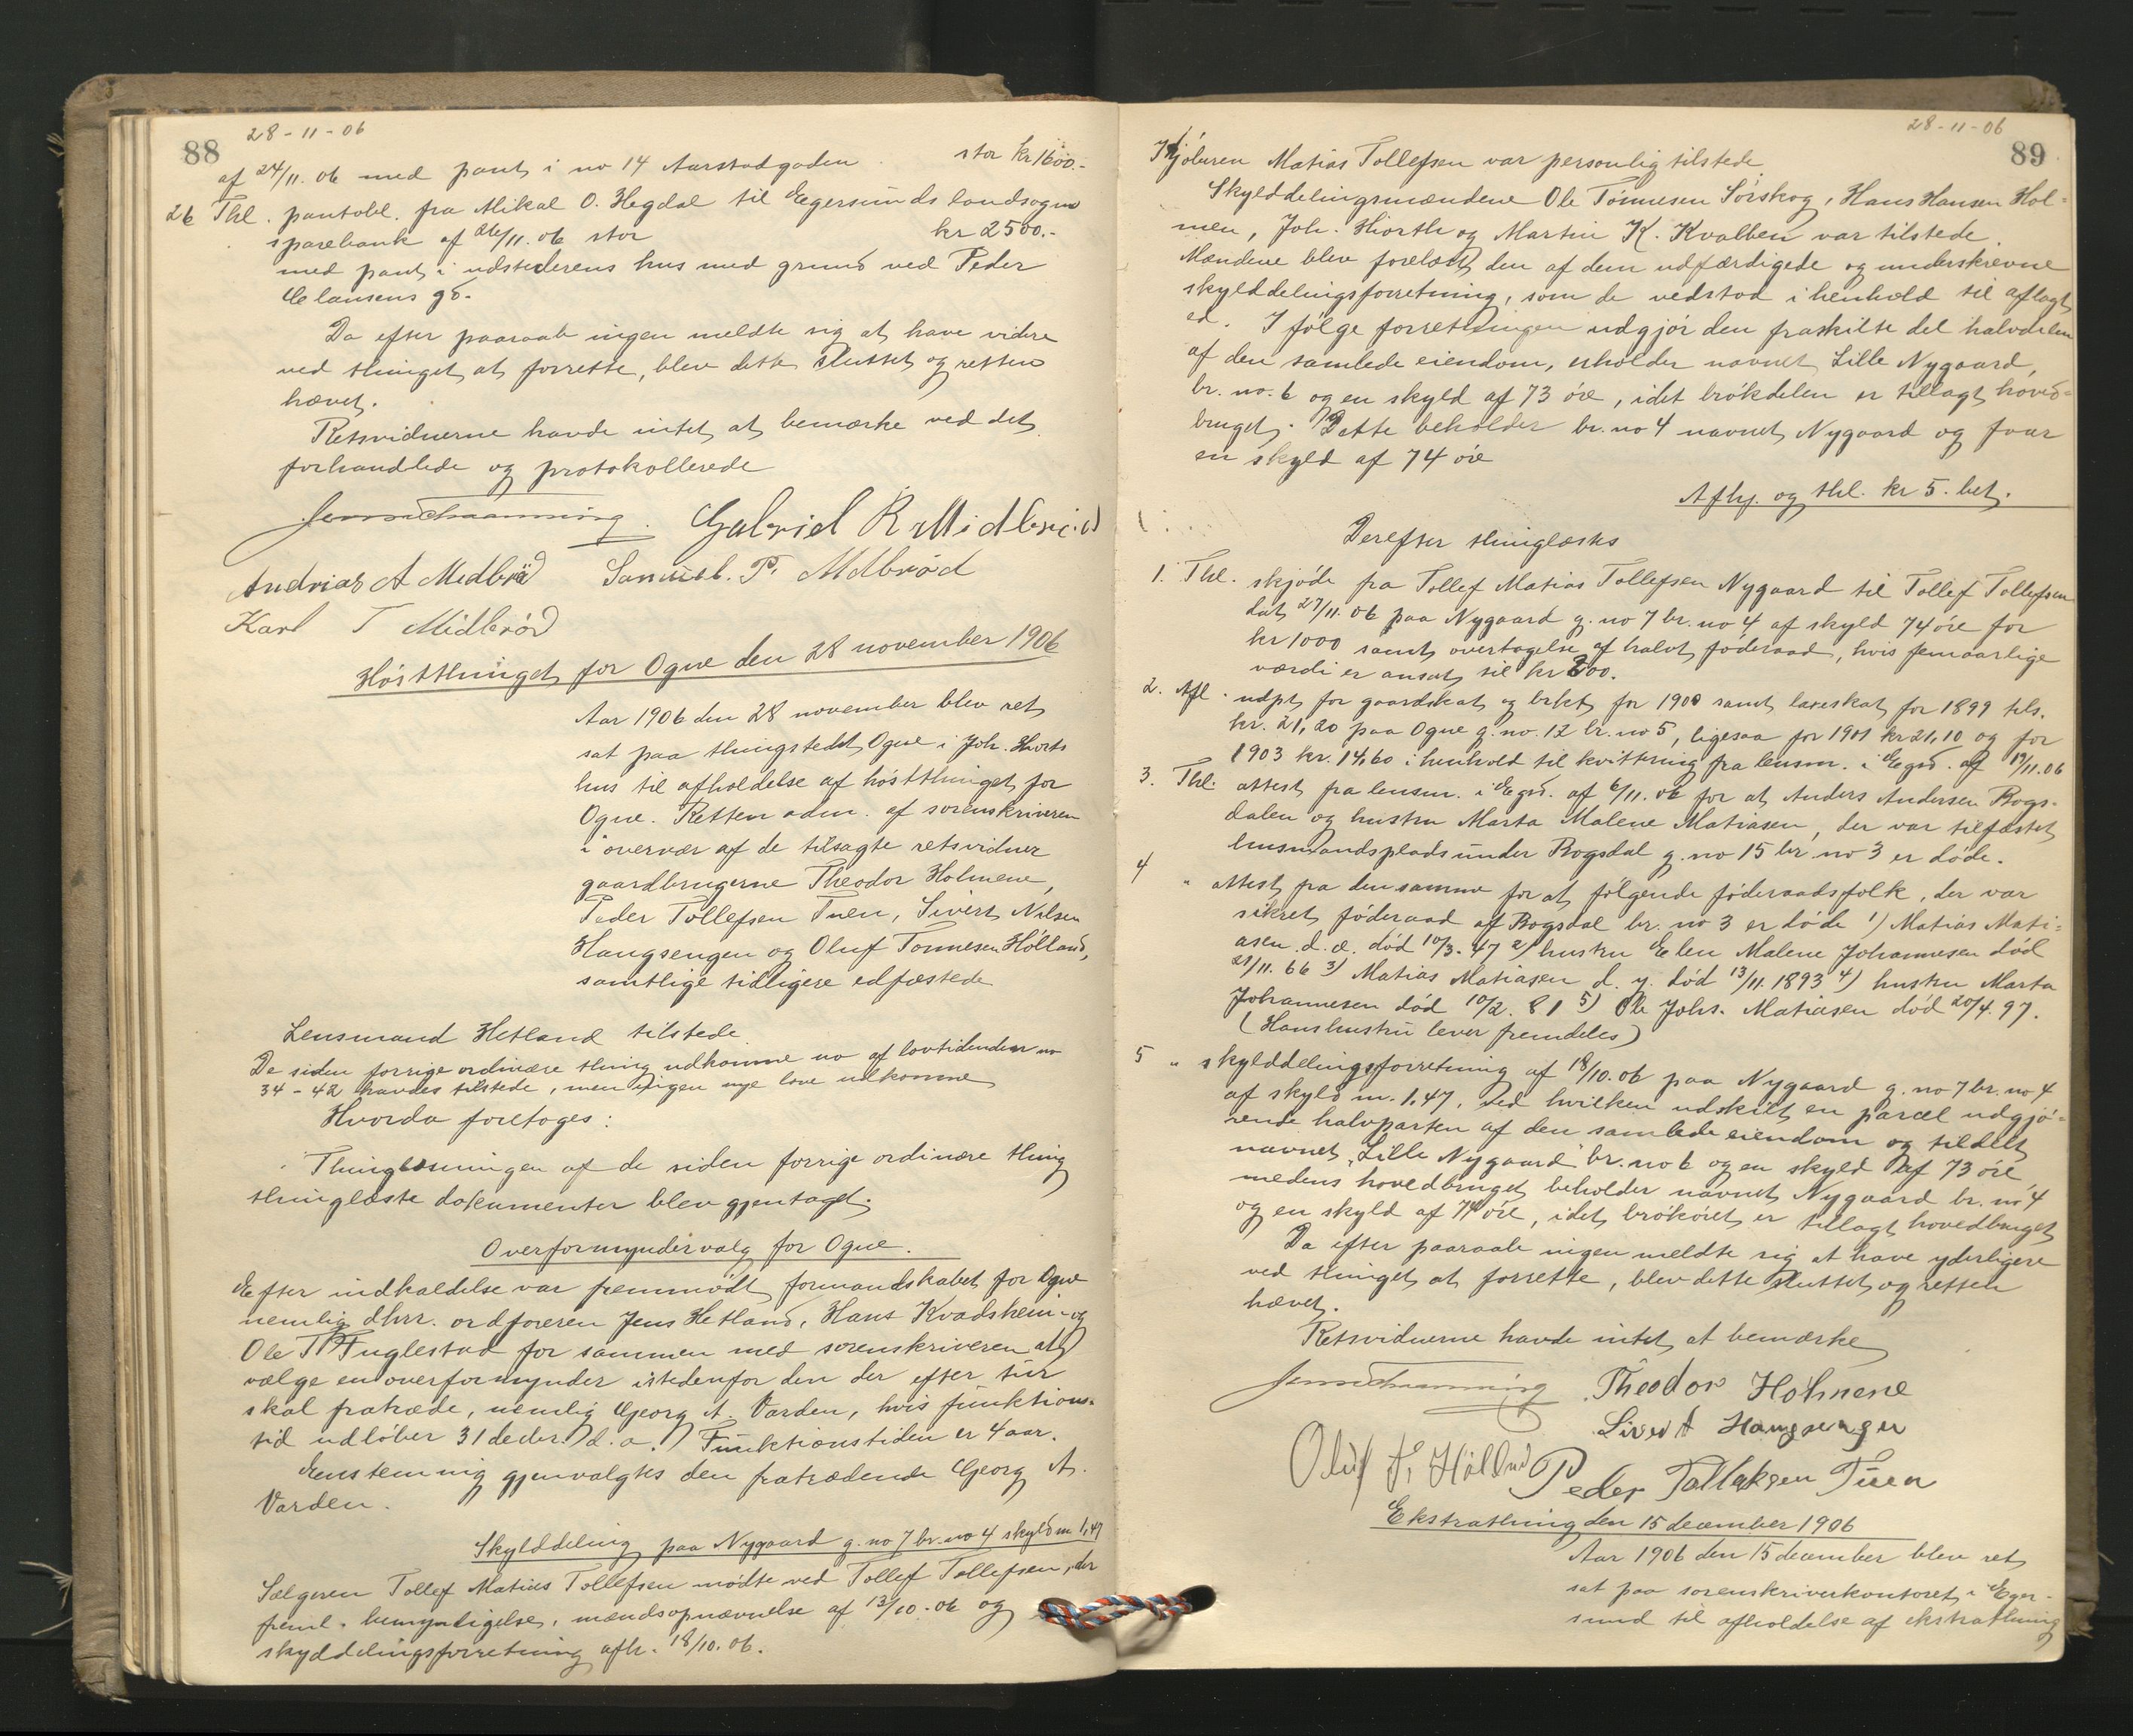 88
28-11-06
af 24/11. 06 med pant i no 14 Aarstadgaden stor kr 1600.-
26 Thl. pantobl. fra Mikal O. Hegdal til Egersunds landsogns
sparebank af 26/11. 06 stor kr 2500.-
med pant i udstederens hus med grund ved Peder
Clausens gd.
Da efter paaraab ingen meldte sig at have videre
ved thinget at forrette, blev dette sluttet og retten
hævet.
Retsvidnerne havde intet at bemærke ved det
forhandlede og protokollerede
Gabriel R Midbrød
Andrias A Midbrød Samuel. P. Midbrød
Karl T Midbrød
Høstthinget for Ogne den 28 november 1906
Aar 1906 den 28 november blev ret
sat paa thingstedet Ogne i Joh. Hiorts
hus til afholdelse af høstthinget for
Ogne. Retten adm. af sorenskriveren
i overvær af de tilsagte retsvidner
gaardbrugerne Theodor Holmene,
Peder Tollefsen Tuen, Sivert Nilsen
Haugsengen og Oluf Tønnesen Hølland,
samtlige tidligere edfæstede
Lensmand Hetland tilstede.
De siden forrige ordinære thing udkomne no af lovtidenden no
34-42 havdes tilstede, men ingen nye love udkomne
Hvorda foretoges:
Thinglæsningen af de siden forrige ordinære thing
thinglæste dokumenter blev gjentaget.
Overformyndervalg for Ogne.
Efter indkaldelse var fremmødt formandskabet for Ogne
nemlig dhrr. ordføreren Jens Hetland, Hans Kvadsheim og
Ole T Fuglestad for sammen med sorenskriveren at
vælge en overformynder istedenfor den der efter tur
skal fratræde, nemlig Georg A. Varden, hvis funktions-
tid udløber 31 decbr. d. a. Funktionstiden er 4 aar.
Enstemmig gjenvalgtes den fratrædende Georg A.
Varden.
Skylddeling paa Nygaard g. no 7 br. no 4 skyld m 1,47
Sælgeren Tollef Matias Tollefsen mødte ved Tollef Tollefsen, der
freml. bemyndigelse, mændsopnævnelse af 13/10. 06 og
skylddelingsforretning afh. 18/10. 06.
28-11-06
89
Kjøberen Matias Tollefsen var personlig tilstede
Skylddelingsmændene Ole Tønnesen Sørskog, Hans Hansen Hol=
men, Joh. Hiorth og Martin K. Kvalben var tilstede.
Mændene blev forelæst den af dem udfærdigede og underskrevne
skylddelingsforretning, som de vedstod i henhold til aflagt
ed. I følge forretningen udgjør den fraskilte del halvdelen
af den samlede eiendom, erholder navnet Lille Nygaard,
br. no. 6 og en skyld af 73 øre, idet brøkdelen er tillagt hoved=
bruget. Dette beholder br. no 4 navnet Nygaard og faar
en skyld af 74 øre
Afhj. og thl. kr 5. bet.
Derefter thinglæstes
1. Thl. skjøde fra Tollef Matias Tollefsen Nygaard til Tollef Tollefsen
dat 27/11. 06 paa Nygaard g. no 7 br. no 4 af skyld 74 øre for
kr 1000 samt overtagelse af halvt føderaad, hvis femaarlige
værdi er ansat til kr 200.
2. Afl. udpt for gaardskat og brkt for 1900 samt læreskat for 1899 tils.
kr. 21,20 paa Ogne g. no. 12 br. no 5, ligesaa for 1901 kr 21,10 og for
1903 kr. 14,60 i henhold til kvittering fra lensm. i Egsd. af 19/11. 06
3. Thl. attest fra lensm. i Egsd. af 6/11. 06 for at Anders Andersen Bogs-
dalen og hustru Marta Malene Matiasen, der var tilfæstet
husmandsplads under Bogsdal g. no 15 br. no 3 er døde.
4 " attest fra densamme for at følgende føderaadsfolk, der var
sikret føderaad af Bogsdal br. no 3 er døde 1) Matias Mati=
asen d. æ. død 10/3. 47 2) hustru Elen Malene Johannesen død
21/11. 66 3) Matias Matiasen d. y. død 13/11. 1893 4) hustru Marta
Johannesen død 10/2. 81 5) Ole Johs. Matiasen død 20/4. 97.
(Hans hustru lever fremdeles)
5 " skylddelingsforretning af 18/10. 06 paa Nygaard g. no 7 br. no 4
af skyld m. 1,47, ved hvilken udskilt en parcel udgjø=
rende halvparten af den samlede eiendom og tildelt
navnet "Lille Nygaard" br. no 6 og en skyld af 73 øre
medens hovedbruget beholder navnet Nygaard br. no 4
og en skyld af 74 øre, idet brøkøret er tillagt hovedbruget
Da efter paaraab ingen meldte sig at have yderligere
ved thinget at forrette, blev dette sluttet og retten
hævet.
Retsvidnerne havde intet at bemærke
Theodor Holmene
Sivert Haugsengen
Oluf T. Hølland Peder Tollaksen Tuen
Ekstrathing den 15 december 1906
Aar 1906 den 15 december blev ret
sat paa sorenskriverkontoret i Eger-
sund til afholdelse af ekstrathing